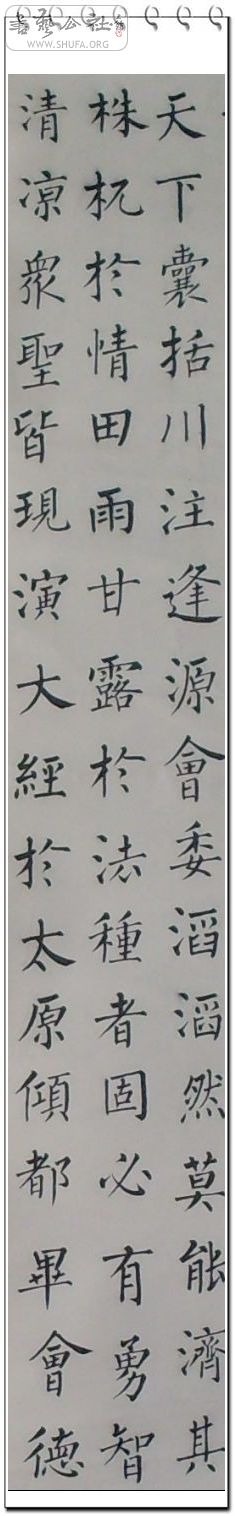 書藝公社
WWW.SHUFA.ORG
天下囊括川注逢源會委滔滔然莫能濟其
株杌於情田雨甘露於法種者固必有勇智
清凉衆聖皆現演大經於太原傾都畢會德